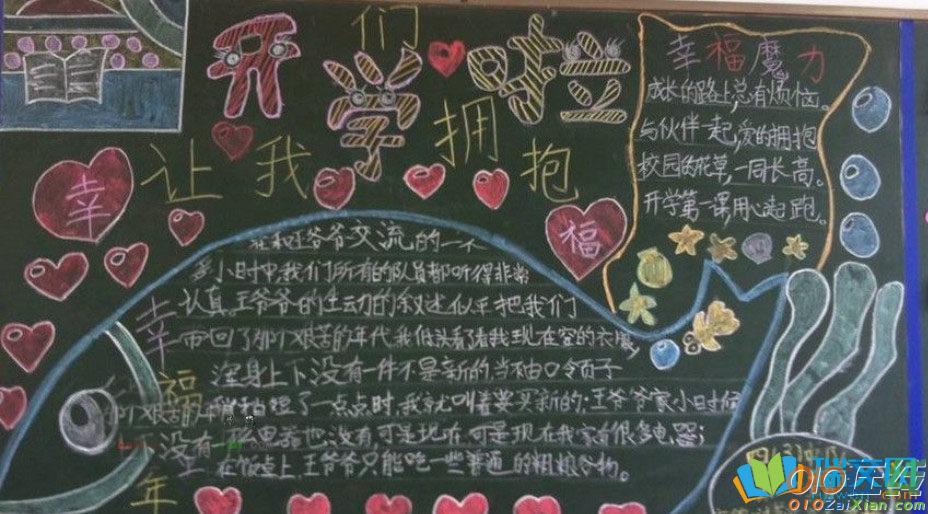 开学啦
让我们拥抱
幸
福
幸福魔力
成长的路上,总有烦恼。
与伙伴一起,爱的拥抱
校园的花草,一同长高。
开学第一课用心起跑。
爷爷交流的一个
多小时中,我们所有的队员都听得非常
认真。王爷爷的生动的叙述似乎把我们
带回了那个艰苦的年代。我低头看了看我现在穿的衣服
浑身上下没有一件不是新的当袖口令页子
稍稍短了一点点时,我就叫着要买新的;王爷爷家小时候
没有一 么电器也没有,可是现在,可是现在我家有很多电器;
在饭桌上,王爷爷只能吃一些普通的粗粮谷物。
幸
福
年
010在线
010ZaiXian.com